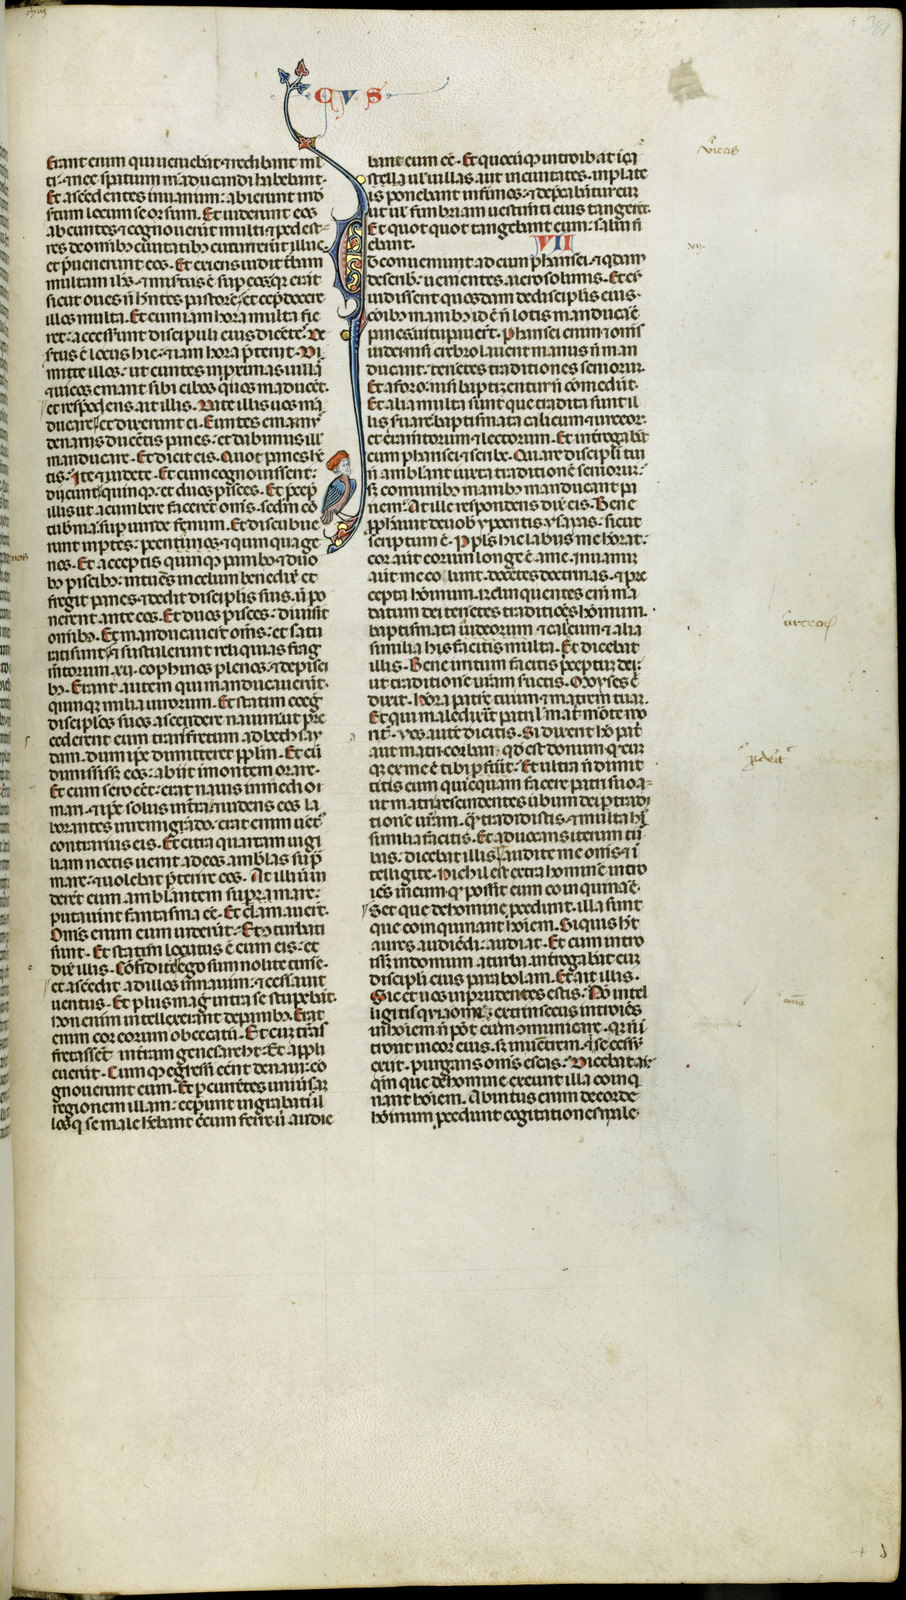 cus
Erant enim qui veniebant ⁊ redibant ml
ti· ⁊ nec spatium mãducandi habebant·
Et ascẽdentes in navim: abierunt in dẽ
sertum locum seorsum. Et viderunt eos
abeuntes ⁊ cognoverunt multi ⁊ pedest-
res de omnibʒ civitatibʒ cucurrerunt illuc·
et pͥvenerunt eos. Et exiens vidit t̃bam
multam iħs· ⁊ mist̃us ẽ sup eos· qͥ erãt
sicut oves ñ hñtes pastorẽ· et cep̃ docere
illos multa. Et cum iam hora multa fie
ret: accesserunt discipuli eius dicẽtes· De
sertus ẽ locus hic· ⁊ iam hora p̃teriit· Di
mitte illos: ut euntes in proximas villas
⁊ vicos emant sibi cibos quos mãducẽt·
et respõdens ait illis. Date illis vos mã
ducare· et dixerunt ei. Euntes emamꝰ
denariis ducẽtis panes: et dabimus ill̃
manducare. Et dicit eis. Quot panes hẽ
tis· Ite ⁊ videte. Et cum cognovissent:
dicunt quinqʒ· et duos pisces. Et precep̃
illis ut accumbere facerent om̃s· sedm cõ
tubnia sup viride fenum. Et discubue
runt in p̃tes: p centenos· ⁊ quinquage
nos. Et acceptis quinqʒ panibʒ ⁊ duo
bʒ piscibʒ: intuẽs in celum benedixit· et
fregit panes· ⁊ dedit discipulis suis· ut po
nerent ante eos. Et duos pisces· divisit
omibʒ. Et manducaverunt om̃s: et satu
rati sunt· ⁊ sustulerunt reliquias frag
m̃torum· xii· cophinos plenos· ⁊ de pisci
bʒ. Erant autem qui manducaverunt·
quinqʒ milia virorum. Et statim coeg̃
discipulos suos ascendere navim: ut pre
cederent eum trans fretum ad bethsay
dam· dum ip̃e dimitteret pplm. Et cũ
dimisiss; eos: abiit i montem orare·
Et cum sero cẽt: erat navis in medio
mari· ⁊ ip̃e solus in t̃ra· ⁊ videns eos la
borantes in remigãdo: erat enim vẽtꝰ
contrarius eis. Et circa quartam vigi
liam noctis venit ad eos amblãs sup̃
mare: ⁊ volebat p̃terire eos. At illi ut vi
derũt eum amblantem supra mare:
putaverunt fantasma eẽ. Et clamaverũt·
Omẽs enim eum viderunt: Et cõturbati
sunt. Et statim locutus ẽ cum eis: et
dixit illis. Cõfidite ego sum nolite timẽ·
et ascẽdit ad illos in navim: ⁊ cessavit
ventus. Et plus magis intra se stupebãt·
Non enim intellexerant de panibʒ. Erat
enim cor eorum obcecatũ. Et cum trãs
fretassẽt· in t̃ram genesareht: Et appli
cuerũt. Cum qʒ egressi eẽnt de navi: co
gnoverunt eum. Et p̃currẽtes univsãʒ
regionem illam: cep̃unt in grabatis il
los qui se male hẽbant c̃cum ferre· ubi audie
bant eum eẽ. Et quocũqʒ introibat i ca
stella ul villas aut in civitates· in plate
is ponebant infirmos· ⁊ dep̃cabãtur eũ
ut ul fimbriam vestimti eius tangerẽt·
Et quot quot tangebant eum: salvi fi
ebant.
VII
Et conveniunt ad eum pharisei· ⁊ qdam
de scribʒ· venientes a ierosolimis. Et cũ
vidissent quosdam de discipulis eius·
cõibʒ manibʒ id ẽ ñ lotis manducãẽ
panes· vitupavẽrt. Pharisei enim ⁊ om̃s
iudei nisi crebro lavent manus ñ man
ducant: tenẽtes traditiones seniorum.
Et a foro: nisi baptizentur ñ comedũt·
Et alia multa sunt que tradita sunt il
lis s̃vare· baptismata calicum ⁊ urceor·
et eramẽtorum ⁊ lectorum. Et int̃rogabãt
eum pharisei ⁊ scribe. Quare discipli tui
ñ amblant iuxta traditionẽ seniorum:
sʒ comunibʒ manibʒ manducant pa
nem: At ille respondens dix̃ eis. Bene
pphavit de vob̃ ypocritis ysayas· sicut
scriptum ẽ. Ppl̃s hic labiis me honorat:
cor aut eorum longe ẽ a me· In vanum
aut me colunt· docẽtes doctrinas· ⁊ pre
cepta hõinum. Relinquentes em̃ mã
datum dei tenẽtes traditiões hõinum·
baptismata urceorum ⁊ calicum ⁊ alia
similia his facitis multa. Et dicebat
illis. Bene irritum facitis p̃ceptum dei:
ut traditionẽ vr̃am s̃vetis. Moyses ẽ
dixit. Honora patrẽ tuum ⁊ matrem tuaʒ.
Et qui maledixerit patri l mat̃: morte mo
riat̃. Vos autẽ dicitis. Si dixerit hõ pat̃
aut matri· corban· qd̃ est donum q̃cũ
qʒ ex me ẽ tibi p̃fũit: Et ultra ñ dimit
titis eum quicquam facere patri suo a-
ut matri: rescindentes ũbum dei p tradi
tionẽ vr̃am· q̃ tradidistis· ⁊ multa hiʒ
similia facitis. Et advocans iterum tur
bas: dicebat illis audite me om̃s ⁊ i
telligite. Nichil est extra hominẽ intro
iẽs in eum· qʒ possit eum coinquinãẽ·
Set que de homine pcedunt· illa sunt
que coinquinant hoiẽm. Si quis hẽt
aures audiẽdi: audiat. Et cum intro
iss; in domum a turba: int̃rogabãt eũ
discipli eius parabolam. Et ait illis.
Sic et vos inprudentes estis. Nõ intel
ligitis quia om̃e extrinsecus introiẽs
in hoiẽm ñ põt eum cõmunicare· qʒ ñ i
troivit in cor eius· sʒ in ventrem· ⁊ i secess̃
exit· purgans om̃s escas: Dicebat aũ·
qm̃ que de homine exeunt illa coinq̃
nant hoiẽm. Ab intus enim de corde
hõinum pcedunt cogitationes male·
vicos
vij·
urceoꝝ
om̃e